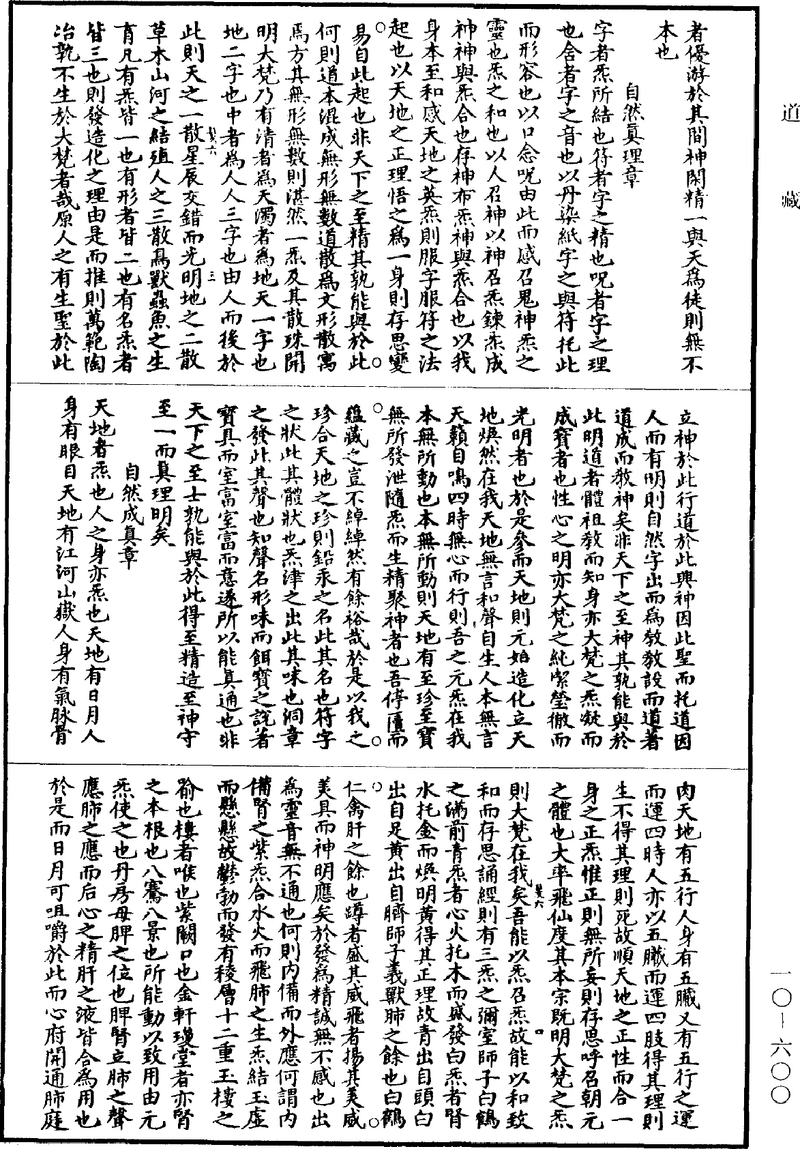 道藏
者優游於其間神閑精一與天為徒則無不
本也
自然眞理章
字者炁所結也符者字之精也呪者字之理
也含者字之音也以丹染紙字之與符托此
而形容也以口念呪由此而感召鬼神炁之
靈也炁之和也以人召神以神召炁鍊炁成
神神與炁合也存神布炁神與炁合也以我
身本至和感天地之英炁則服字服符之法
起也以天地之正理悟之為一身則存思變
易自此起也非天下之至精其孰能與於此
何則道本混成無形無數道散為文形散寓
焉方其無形無數則湛然一炁及其散殊開
明大梵乃有清者為天濁者為地天一字也
地二字也中者為人人三字也由人而後於
此則天之一散星辰交錯而光明地之二散
草木山河之結殖人之三散鳥獸蟲魚之生
育凡有炁皆一也有形者皆二也有名炁者
皆三也則發造化之理由是而推則萬範陶
冶孰不生於大梵者哉原人之有生聖於此
立神於此行道於此與神因此聖而托道因
人而有明則自然字出而為敎敎設而道著
道成而敎神矣非天下之至神其孰能與於
此明道者體祖敎而知身亦大梵之炁凝而
成寶者也性心之明亦大梵之純潔瑩徹而
光明者也於是參而天地則元始造化立天
地煥然在我天地無言和聲自生人本無言
天籟自鳴四時無心而行則吾之元炁在我
本無所動也本無所動則天地有至珍至寶
無所發泄隨炁而生精聚神者也吾停匱而
蘊藏之豈不綽綽然有餘裕哉於是以我之
珍合天地之珍則鉛汞之名此其名也符字
之狀此其體狀也炁津之出此其味也洞章
之發此其聲也知聲名形味而餌寶之說著
寶具而室富室富而意遂所以能眞通也非
天下之至士孰能與於此得至精造至神守
至一而眞理明矣
自然成眞章
天地者炁也人之身亦炁也天地有日月人
身有眼目天地有江河山嶽人身有氣脉骨
肉天地有五行人身有五臟又有五行之運
而運四時人亦以五臟而運四肢得其理則
生不得其理則死故順天地之正性而合一
身之正炁惟正則無所妄則存思呼召朝元
之體也大率飛仙度其本宗既明大梵之炁
則大梵在我矣吾能以炁召炁故能以和致
和而存思誦經則有三炁之彌室師子白鶴
之滿前青炁者心火托木而盛發白炁者腎
水托金而煥明黃得其正理故青出自頭白
出自足黃出自臍師子義獸肺之餘也白鶴
仁禽肝之餘也蹲者盛其威飛者揚其美威
美具而神明應矣於發為精誠無不感也出
為靈音無不通也何則內備而外應何謂內
備腎之紫炁合水火而飛肺之生炁結玉虛
而懸懸故欝勃而發有稜層十二重玉樓之
喻也樓者喉也紫闕口也金軒瓊堂者亦腎
之本根也八騫八景也所能動以致用由元
炁使之也丹房母脾之位也脾腎立肺之聲
應肺之應而后心之精肝之液皆合為用也
於是而日月可咀嚼於此而心府開通肺庭
一〇-六〇〇